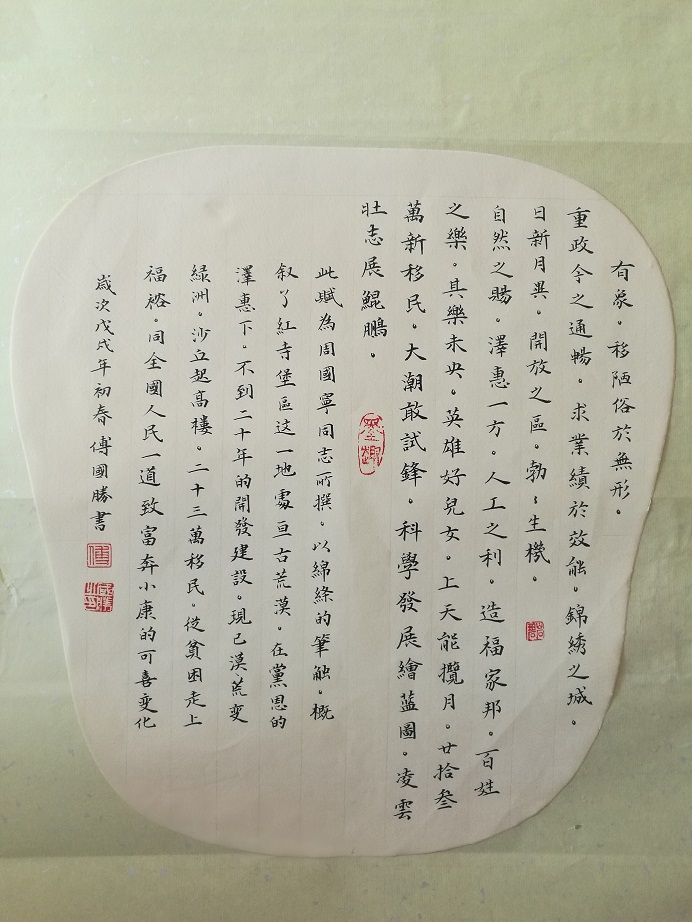 有象。移陋俗於無形。
重政令之通暢。求業績於效能。錦綉之城。
日新月異。開放之區。勃〻生機。
自然之賜。澤惠一方。人工之利。造福家邦。百姓
之樂。其樂未央。英雄好兒女。上天能攬月。廿拾叄
萬新移民。大潮敢試鋒。科學發展繪藍圖。凌雲
壯志展鯤鵬。
墨趣
此賦為周國寧同志所撰。以綿絳的筆触。概
叙了紅寺堡區这一地處亘古荒漠。在黨恩的
澤惠下。不到二十年的開發建設。現已漠荒变
綠洲。沙丘起高樓。二十三萬移民。從貧困走上
福裕。同全國人民一道致富奔小康的可喜变化
歲次戊戌年初春傅國勝書
傅
國勝之印